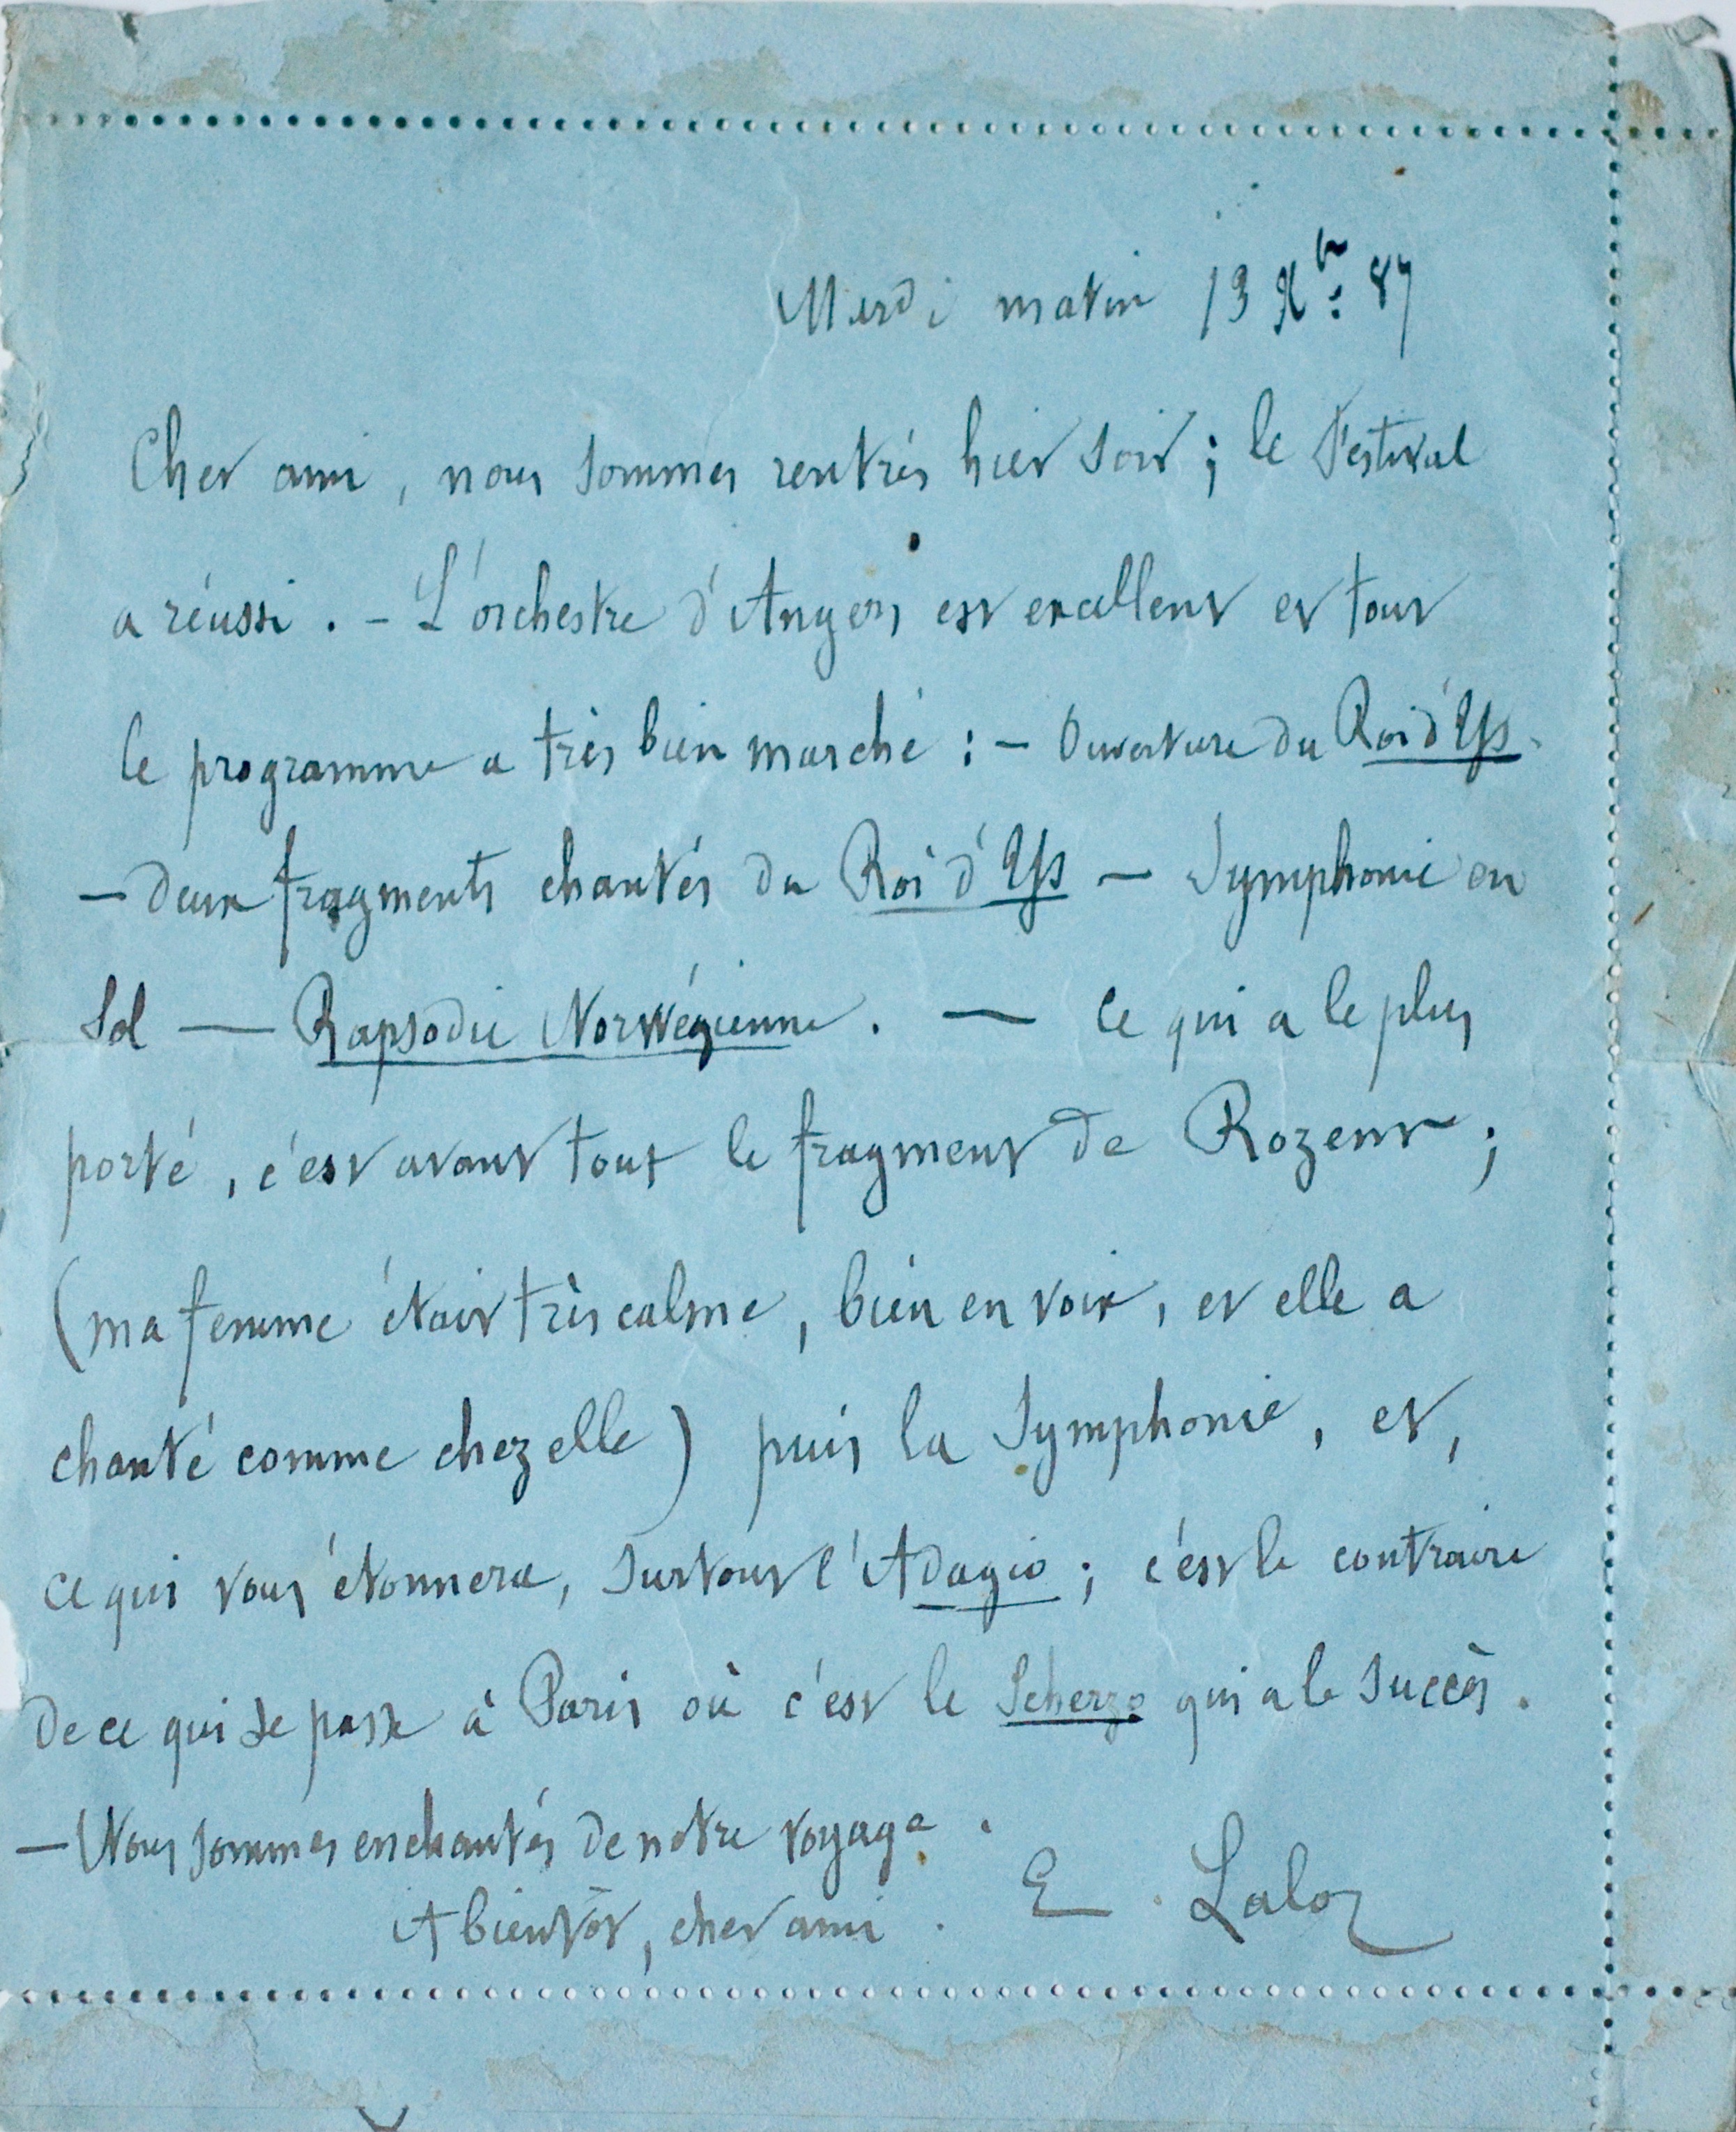 Mardi matin 13 Xbre 87
Cher ami, nous sommes rentrés hier soir ; le Festival
a réussi . - L'orchestre d'Angers est excellent et tout
le programme a très bien marché : - Ouverture du Roi d'Ys.
- deux fragments chantés du Roi d'Ys - Symphonie en
Sol - Rapsodie Norwégienne . - Ce qui a le plus
porté , c'est avant tout le fragment de Rozenn ;
(ma femme était très calme , bien en voix , et elle a
chanté comme chez elle ) puis la Symphonie , et ,
ce qui vous étonnera , surtout l'Adagio ; c'est le contraire
de ce qui se passe à Paris où c'est le Scherzo qui a le succès .
- Nous sommes enchantés de notre voyage .
A bientôt , cher ami . E . Lalo